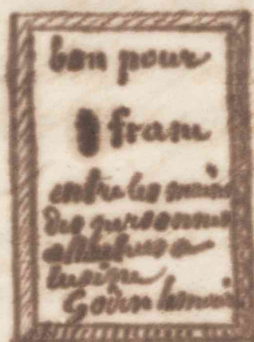 bon pour
1 franc
entre les mains
des personnes
attachées a
lusine
Godin Lemaire